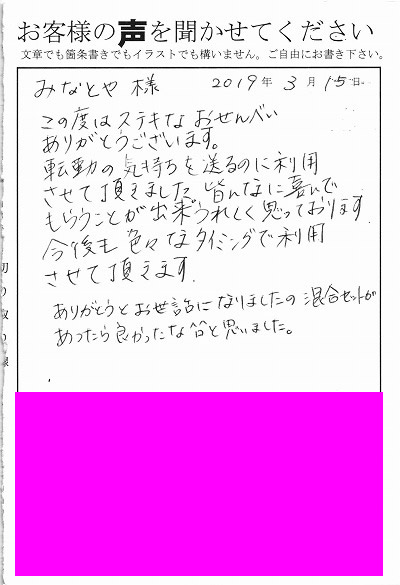 お客様の声を聞かせてください
文章でも箇条書きでもイラストでも構いません。ご自由にお書き下さい。
みなとや 様 2019年 3月 15日
この度はステキな おせんべい
ありがとうございます。
転勤の気持ちを送るのに利用
させて頂きました。皆んなに喜んで
もらうことが出来うれしく思っております
今後も色々なタイミングで利用
させて頂きます
ありがとうとお世話になりましたの混合セットが
あったら良かったな〜と思いました。
切り取り線